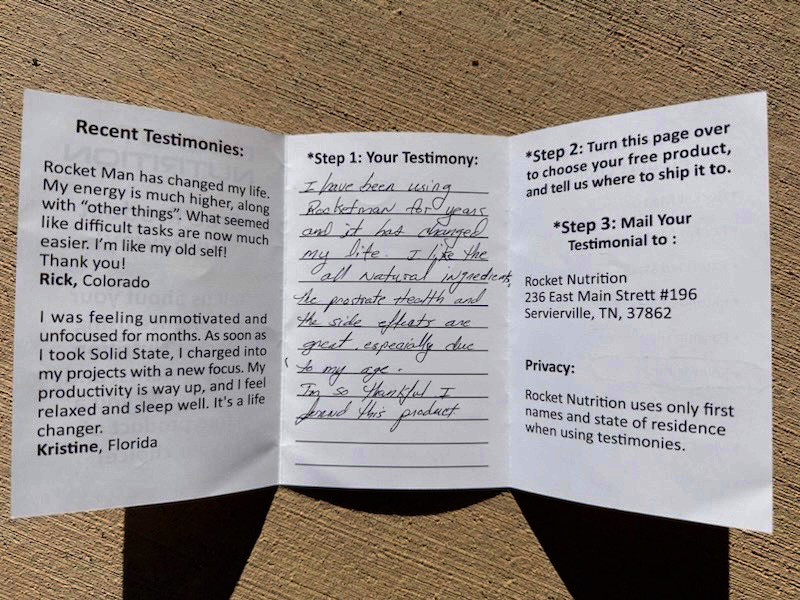 Recent Testimonies:
Rocket Man has changed my life.
My energy is much higher, along
with “other things”. What seemed
like difficult tasks are now much
easier. I’m like my old self!
Thank you!
Rick, Colorado
I was feeling unmotivated and
unfocused for months. As soon as
I took Solid State, I charged into
my projects with a new focus. My
productivity is way up, and I feel
relaxed and sleep well. It's a life
changer.
Kristine, Florida
*Step 1: Your Testimony:
I have been using
Rocketman for years
and it has changed
my life. I like the
all Natural ingredients,
the prostrate Health and
the side effects are
great, especially due
to my age.
I'm so thankful I
found this product
*Step 2: Turn this page over
to choose your free product,
and tell us where to ship it to.
*Step 3: Mail Your
Testimonial to :
Rocket Nutrition
236 East Main Strett #196
Servierville, TN, 37862
Privacy:
Rocket Nutrition uses only first
names and state of residence
when using testimonies.